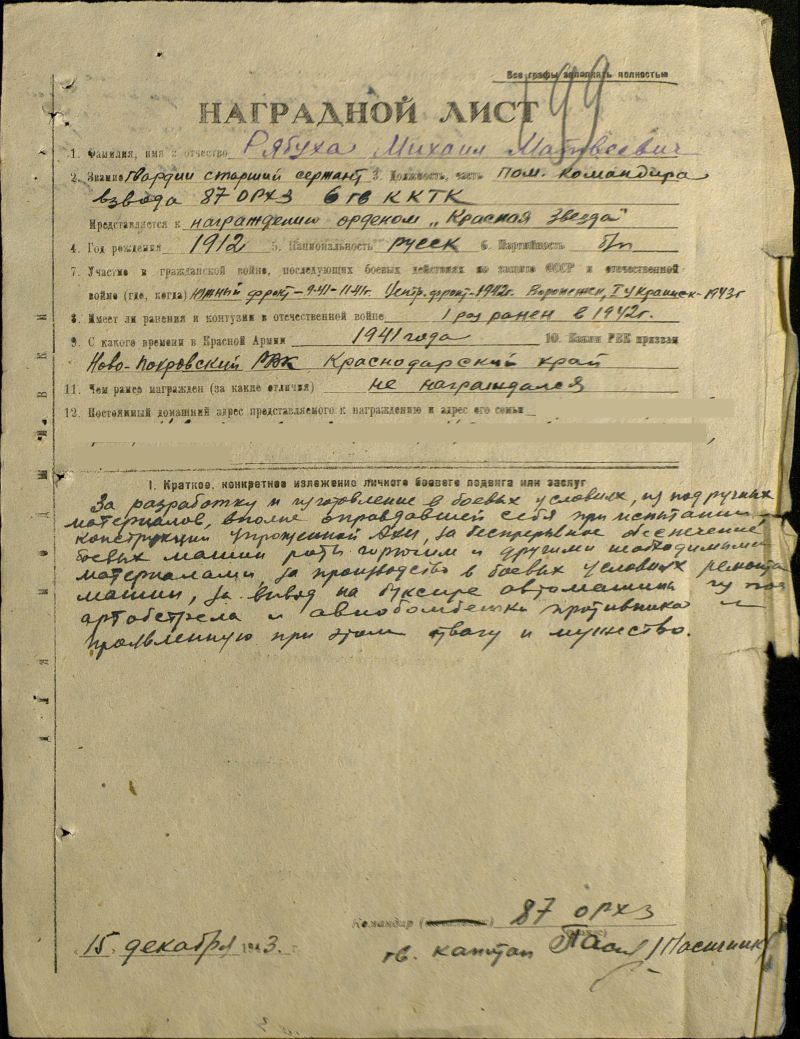 Все графы заполнять полностью
199
НАГРАДНОЙ ЛИСТ
1. Фамилия, имя и отчество Рябуха Михаил Матвеевич
2. Звание гвардии старший сержант 3. Должность, часть пом. командира
взвода 87 ОРХЗ 6 гв ККТК
Представляется к награждению орденом „Красная Звезда"
4. Год рождения 1912 5. Национальность русск 6. Партийность б/п
7. Участие в гражданской войне, последующих боевых действиях по защите СССР и отечественной
войне (где, когда) Южный фронт-9.41-11.41г. Центр. фронт-1942г. Воронежск, I Украинск-1943г
8. Имеет ли ранения и контузии в отечественной войне 1 раз ранен в 1942г.
9. С какого времени в Красной Армии 1941 года 10. Каким РВК призван
Ново-Покровский РВК Краснодарский край
11. Чем ранее награжден (за какие отличия) не награждался
12. Постоянный домашний адрес представляемого к награждению и адрес его семьи
I. Краткое, конкретное изложение личного боевого подвига или заслуг
За разработку и изготовление в боевых условиях, из подручных
материалов, вполне оправдавшей себя при испытании
конструкции упрощенной, за беспрерывное обеспечение
боевых машин роты горючим и другими необходимыми
материалами, за производство в боевых условиях ремонта
машин, за вывод на буксире автомашины из под
артобстрела и авиобомбежки противника и
проявленную при этом отвагу и мужество.
Командир 87 ОРХЗ
15. декабря 1943 г.
гв. капитан /Пасичник